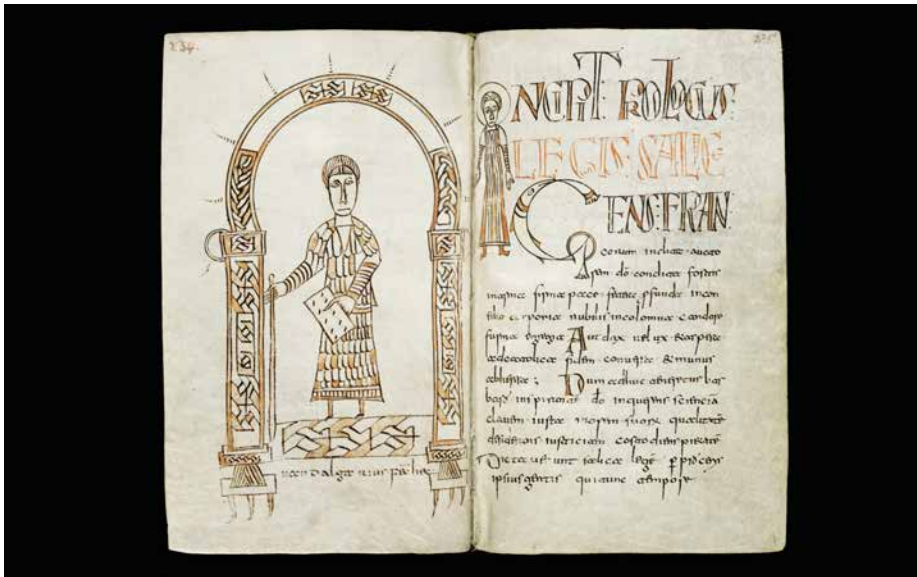 234.
uuandalgarius fec hec
235
INCIPIT PROLOGUS
LEGIS SALICE
GENS FRAN
corum inclita aucto
rem do condita fortis
in arma firma pace fetera profunda in con
silio corporia nobilis incolomna candore
forma egregia Audax uelox et aspera
ad catholica fidem conuersa et munus
Dum adhuc teneretur bar
bara inspirante do inquerens sciencia
clauem iusta morem suorum qualitate
desiderans iusticiam costodiens pietate
Dictauerunt salica lege per proceris
ipsius gentis qui tunc tempore